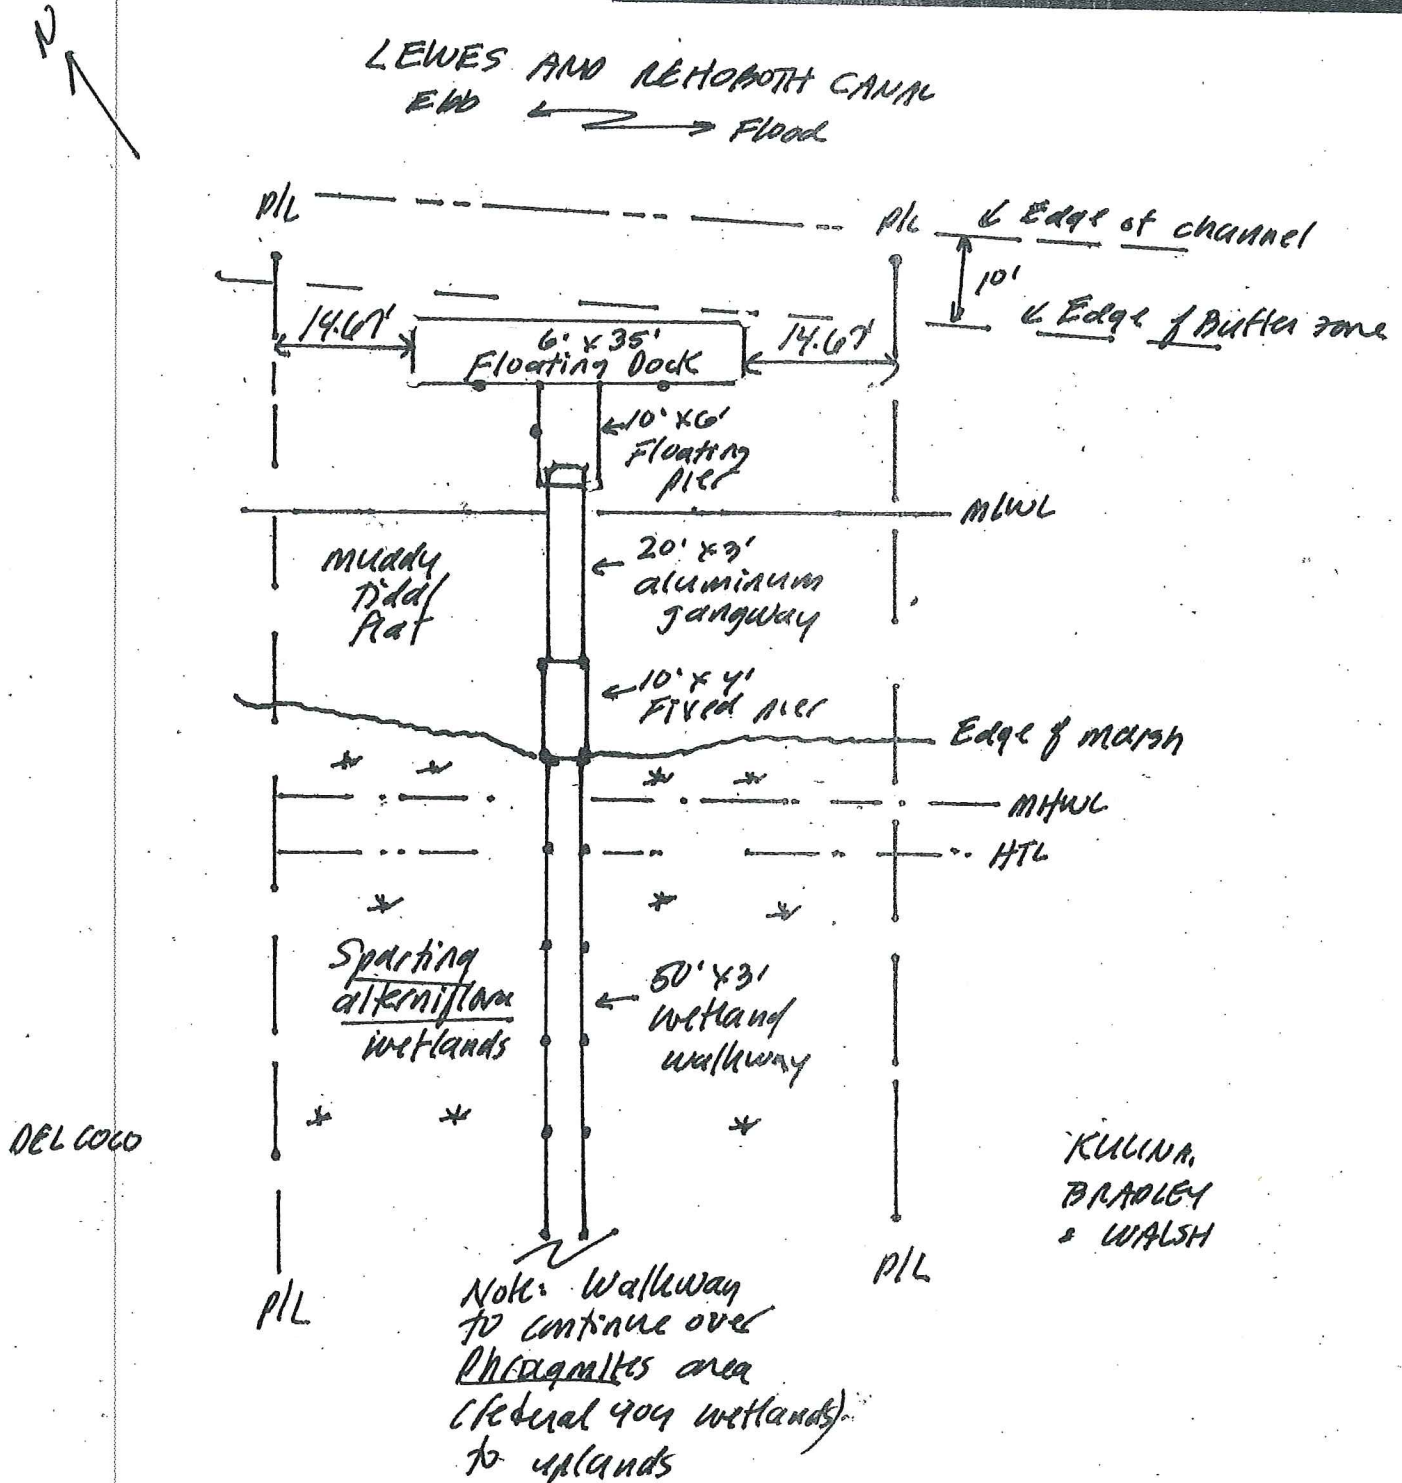 N
LEWES AND REHOBOTH CANAL
Ebb Flood
P/L
P/L
Edge of channel
10'
Edge of Buffer zone
14.67'
6' x 35'
Floating Dock
14.67'
10' x 6'
Floating
pier
MLWL
muddy
tidal
flat
20' x 3'
aluminum
gangway
10' x 4'
Fixed pier
Edge of marsh
MHWL
HTL
Spartina
alterniflora
wetlands
50' x 3'
wetland
walkway
DEL COCO
KULINA,
BRADLEY
& WALSH
P/L
P/L
Note: Walkway
to continue over
Phragmites area
(federal 404 wetlands)
to uplands